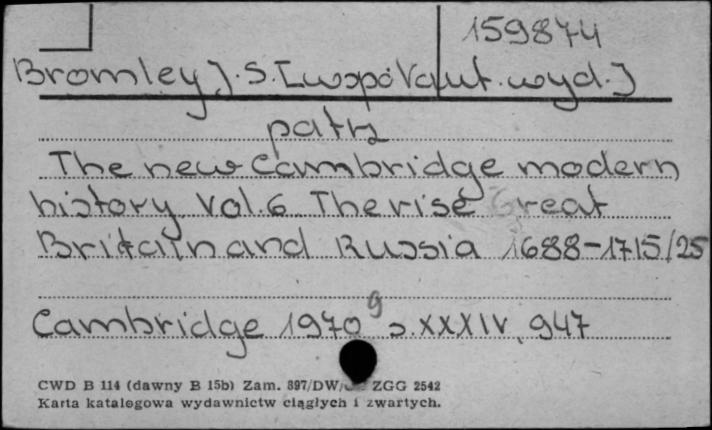 159874
Bromley J. S. [współaut. wyd.]
patrz
The new Cambridge modern
history Vol. 6 The rise Great
Britain and Russia 1688-1715/25
9
Cambridge 1970 s. XXXIV, 947
CWD B 114 (dawny B 15b) Zam. 897/DW/ ZGG 2542
Karta katalogowa wydawnictw ciągłych i zwartych.